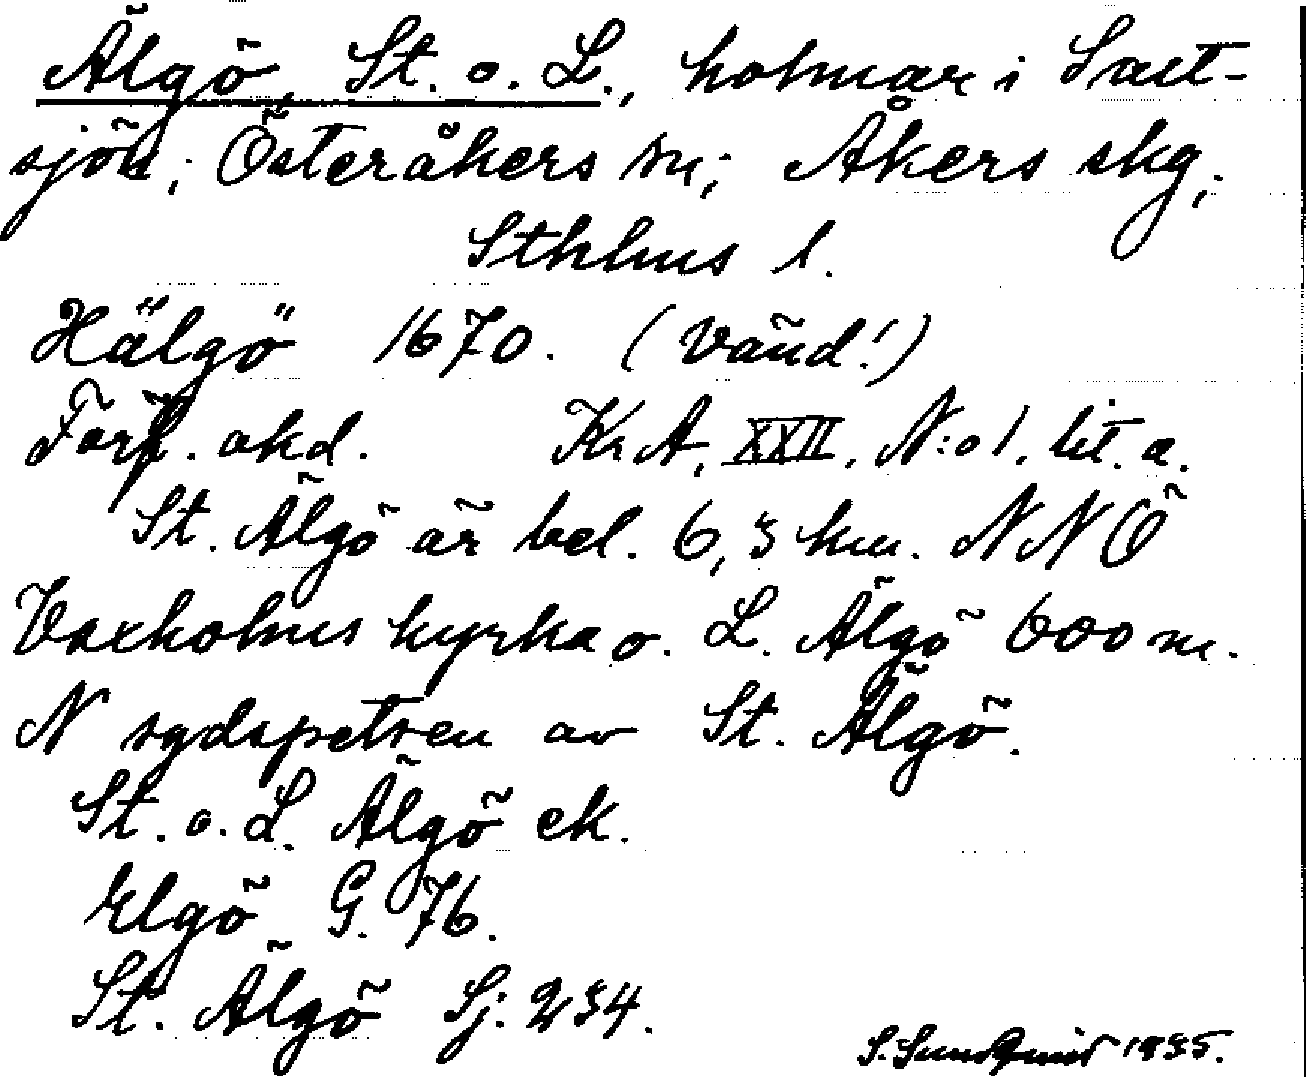 Älgö, St. o. L., holmar i Salt-
sjön; Österåkers sn; Åkers skg;
Sthlms l.
Hälgö 1670. (Vänd!)
Förf. okd. KrA, XXII, N:o 1. lit. a.
St. Älgö är bel. 6,3 km. NNÖ
Vaxholms kyrka o. L. Älgö 600 m.
N sydspetsen av St. Älgö.
St. o. L. Älgö ek.
Elgö G. 76.
St. Älgö Sj. 234.
S. Sundqvist 1935.